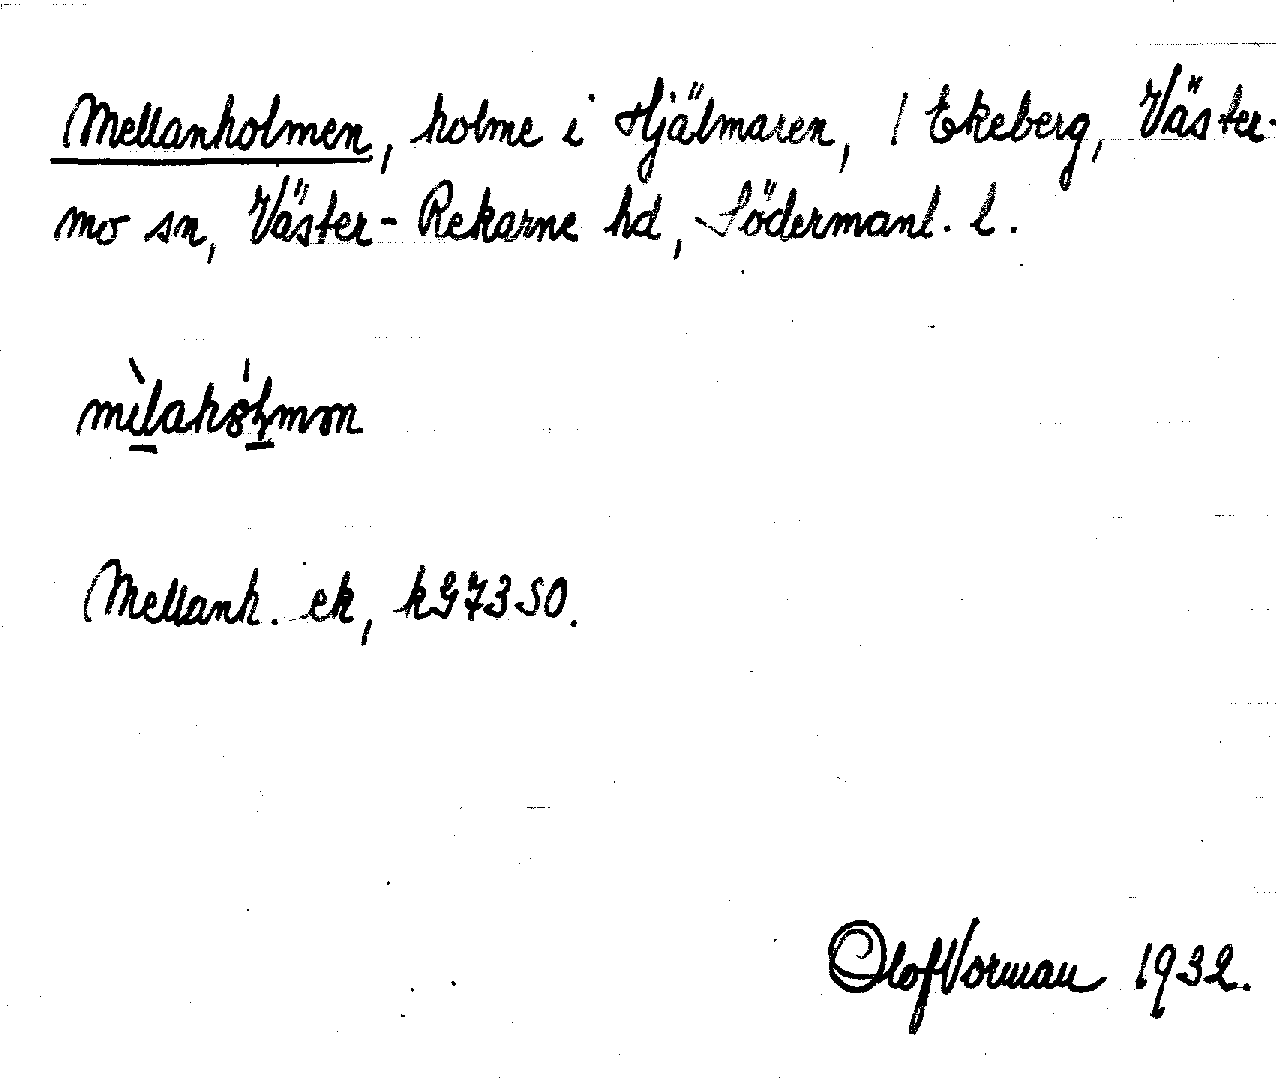 Mellanholmen, holme i Hjälmaren, / Ekeberg, Väster-
mo sn, Väster-Rekarne hd, Södermanl. l.
mìlahólmən
Mellanh. ek, k97350.
Olof Vorman 1932.